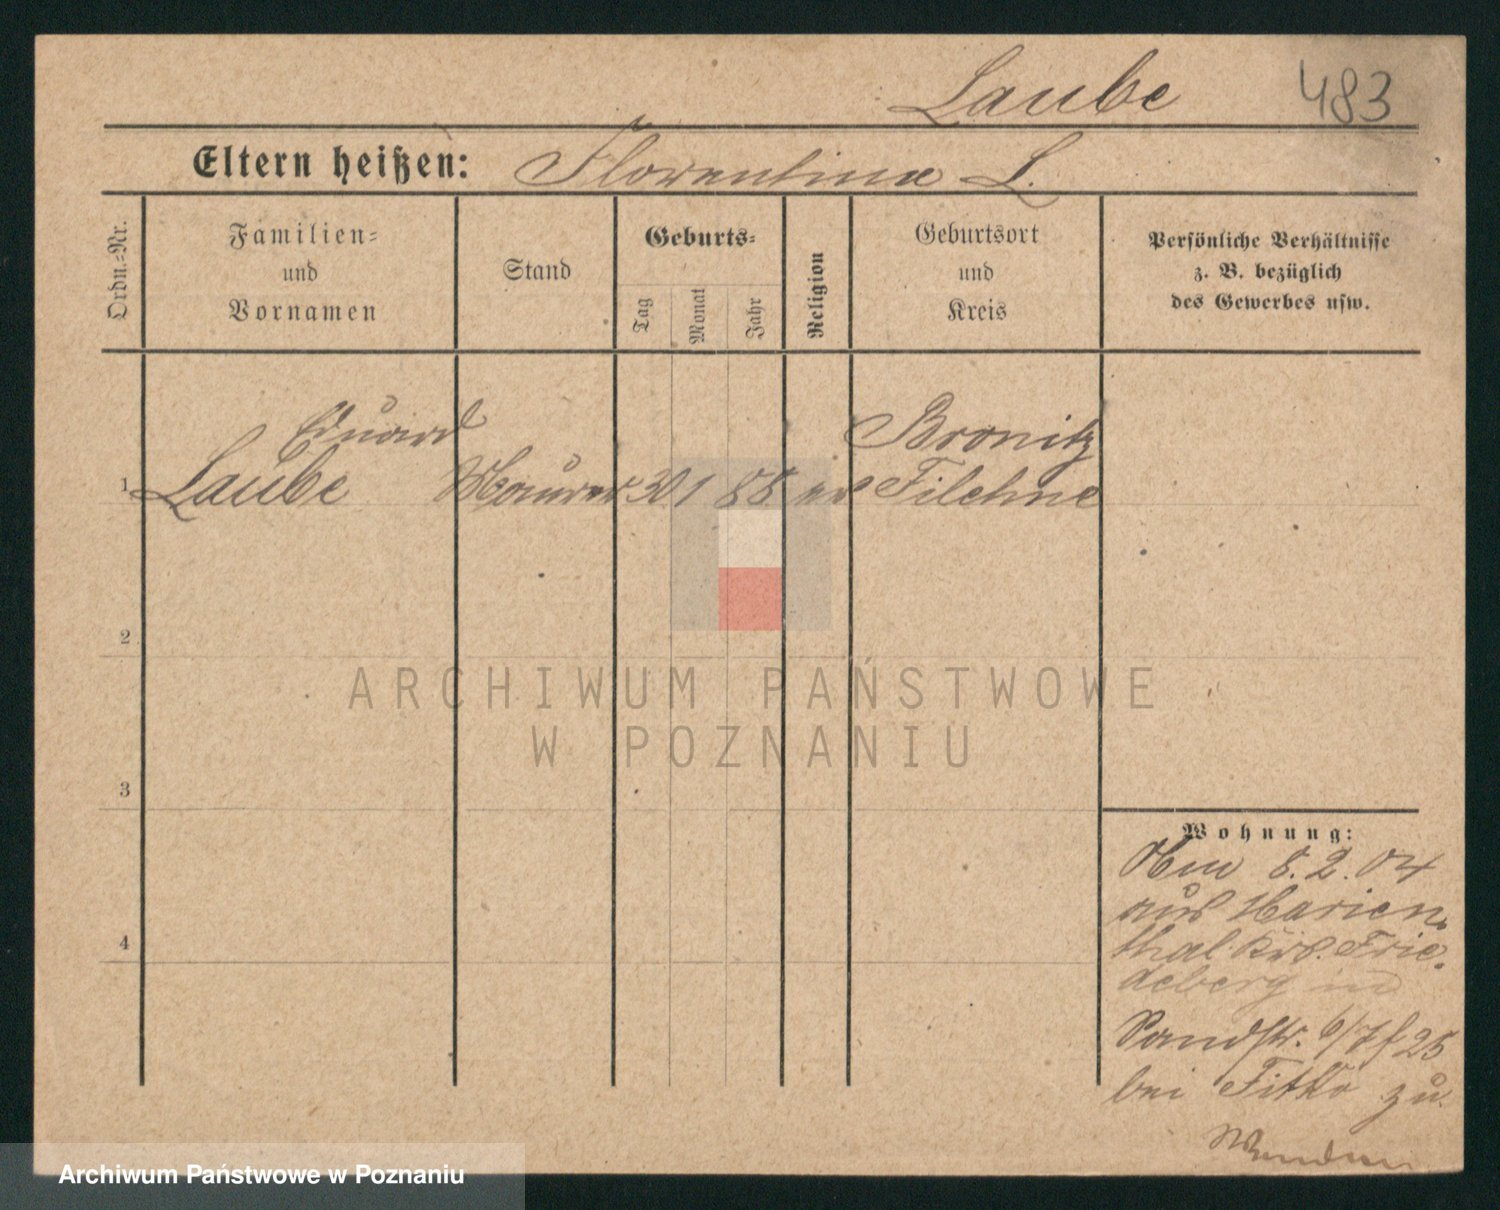 Laube 483
Eltern heißen: Florentine L.
Ordn.-Nr.
Familien-
und
Vornamen
Stand
Geburts-
Tag
Monat
Jahr
Religion
Geburtsort
und
Kreis
Persönliche Verhältnisse
z. B. bezüglich
des Gewerbes usw.
Eduard Bronitz
1 Laube Maurer 30 1 88 ev Filehne
2
3
4
Wohnung:
8. 2. 04
aus Marien-
thal. Krs. Frie-
deberg
Sandstr. 6/7 f 25
bei Fittko zu
ARCHIWUM PAŃSTWOWE
W POZNANIU
Archiwum Państwowe w Poznaniu